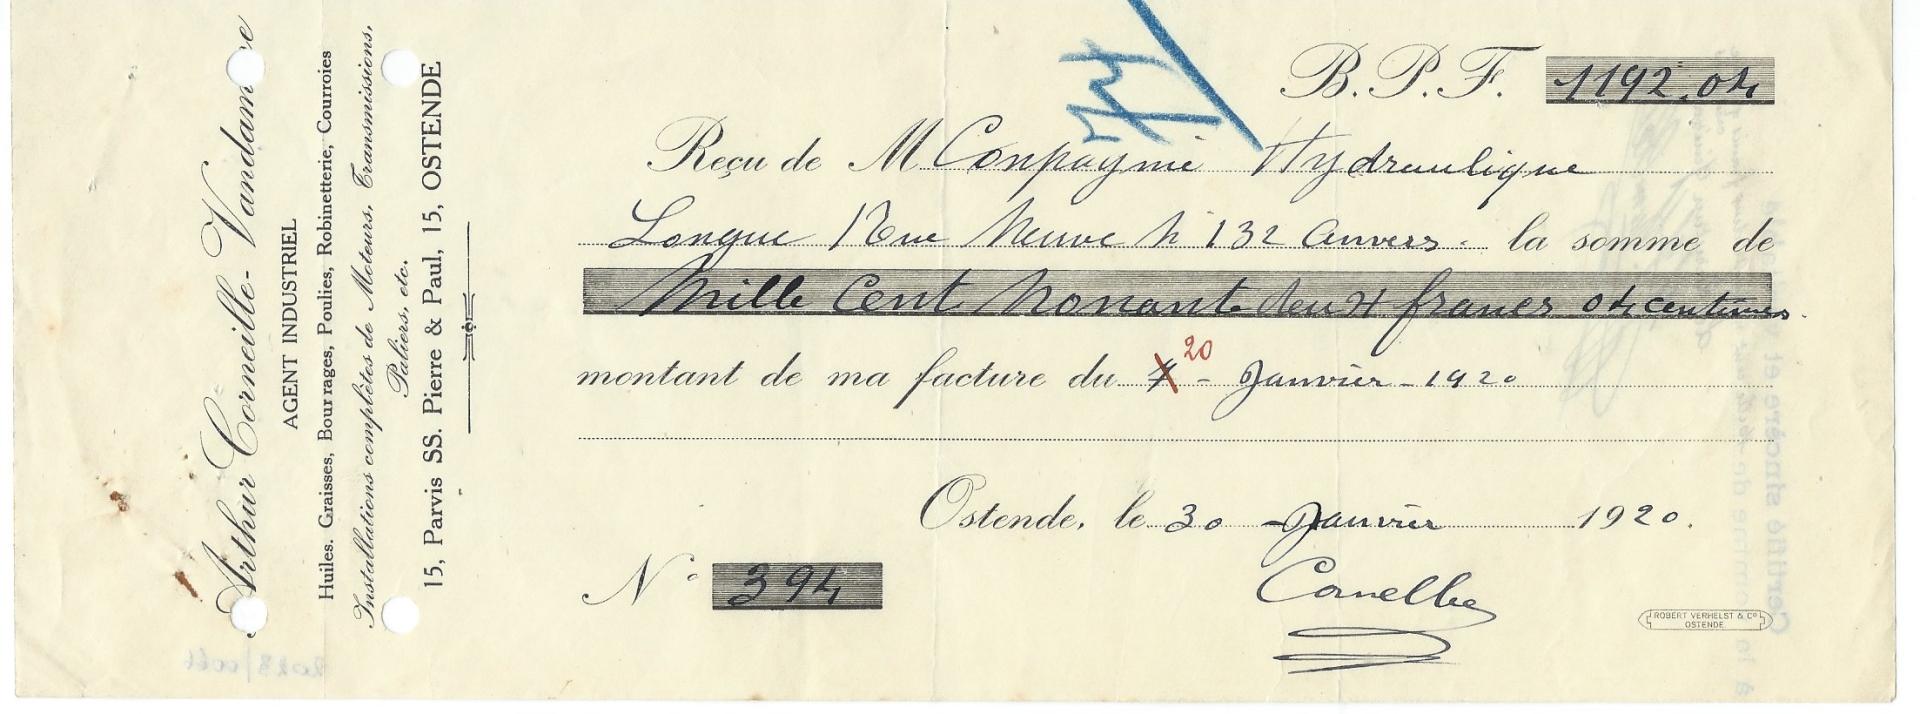 Arthur Corneille-Vandamme
AGENT INDUSTRIEL
Huiles. Graisses, Bourrages, Poulies, Robinetterie, Courroies
Installations complètes de Moteurs, Transmissions,
Paliers, etc.
15, Parvis SS. Pierre & Paul, 15, OSTENDE
B. P. F. 1192.04
Reçu de M Conpagnie Hydraulique
Longue Rue Neuve N° 132 Anvers. la somme de
Mille Cent Nonante deux francs 04 centimes
20
montant de ma facture du - Janvier - 1920
Ostende, le 30 - Janvier 1920.
N° 394
ROBERT VERHELST & Cº
OSTENDE